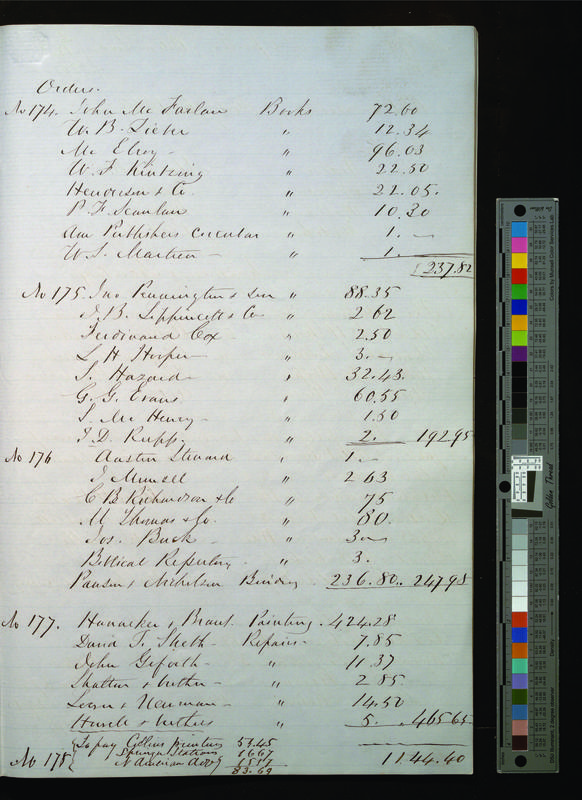 Orders.
No 174. John Mc Farlan Books 72.00
W. B. Zieber " 12.34
Mc Elroy " 96.03
W. F. Kintzing " 22.50
Henderson & Co. " 21.05.
P. F. Scanlan " 10.30
Am Publishers Circular " 1. —
W. S. Martien " 1. —
237.82
No 175. Jno Pennington & Son " 88.35
J. B. Lippincott & Co. " 2 62
Ferdinand Cox " 2.50
L H Hooper " 3. —
S. Hazard " 32.43.
G. G. Evans " 60.55
S. Mc Henry " 1.50
I. D. Rupp. " 2. 192.95
No 176 Austin Steward " 1. —
J Munsell " 2 63
C B Richardson & Co " 75
M Thomas & Co. " 80.
Jos. Buck " 3 —
Biblical Repertory " 3.
Pawson & Nicholson Binding 236.80.. 247 98
No 177. Painting. 424.28
David T. Repairs 7.85
John " 11.37
" 2 85
& Newman " 14.50
" 5. 465 65
To pay Collins printers 53.45
Stationer 16 67
No 178 N American Advg 15 57
83.69
1144.40